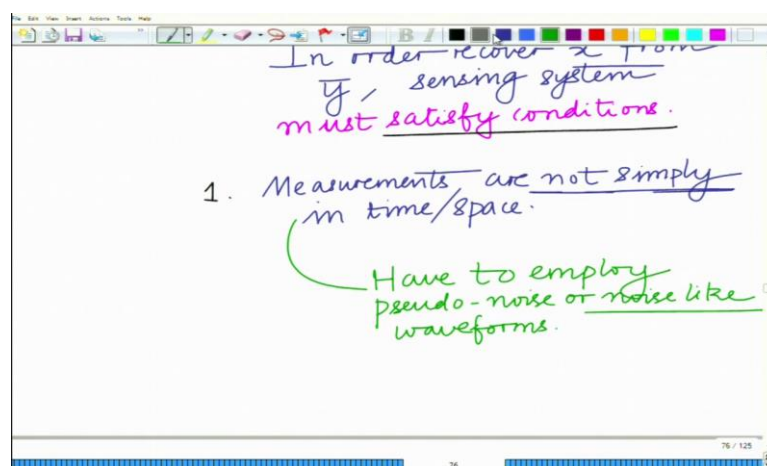 File Edit View Insert Actions Tools Help
In order recover x̄ from
ȳ, sensing system
must satisfy conditions.
1. Measurements are not simply
in time/space.
Have to employ
pseudo-noise or noise like
waveforms.
76 / 125
76